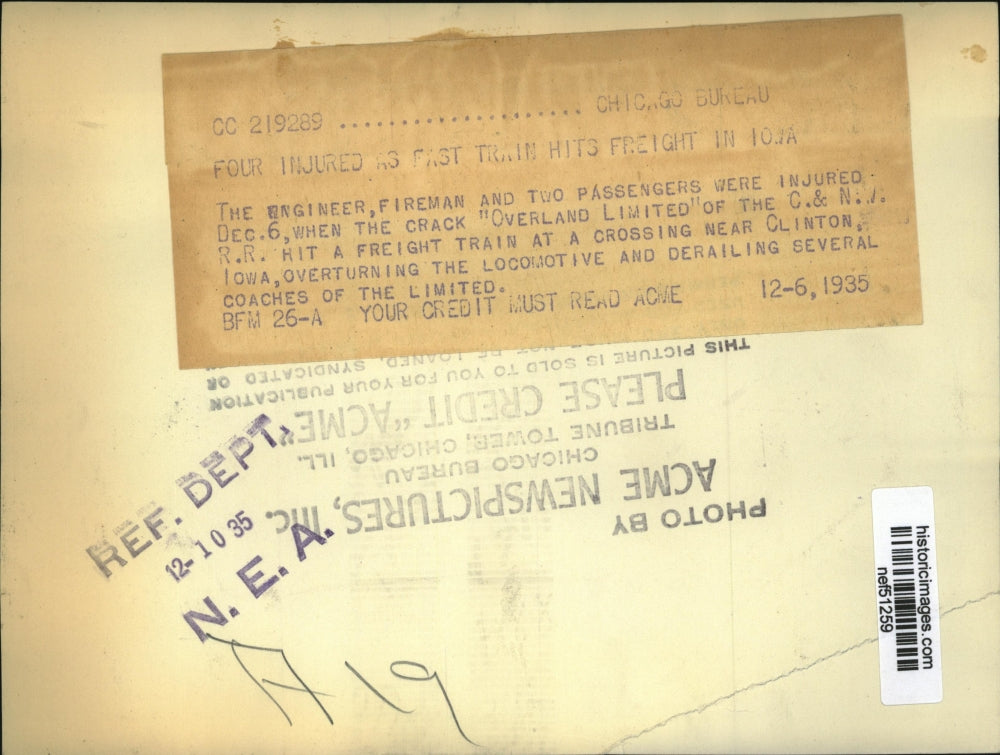 CC 219289 ...................... CHICAGO BUREAU
FOUR INJURED AS FAST TRAIN HITS FREIGHT IN IOWA
THE ENGINEER, FIREMAN AND TWO PASSENGERS WERE INJURED
DEC.6, WHEN THE CRACK "OVERLAND LIMITED" OF THE C.& N.W.
R.R. HIT A FREIGHT TRAIN AT A CROSSING NEAR CLINTON,
IOWA, OVERTURNING THE LOCOMOTIVE AND DERAILING SEVERAL
COACHES OF THE LIMITED.
BFM 26-A YOUR CREDIT MUST READ ACME 12-6, 1935
PHOTO BY
ACME NEWSPICTURES, INC.
CHICAGO BUREAU
TRIBUNE TOWER, CHICAGO, ILL.
PLEASE CREDIT "ACME"
THIS PICTURE IS SOLD TO YOU FOR YOUR PUBLICATION
NOT BE LOANED, SYNDICATED OR
REF. DEPT.
12-10 35
N. E. A.
historicimages.com
nef51259